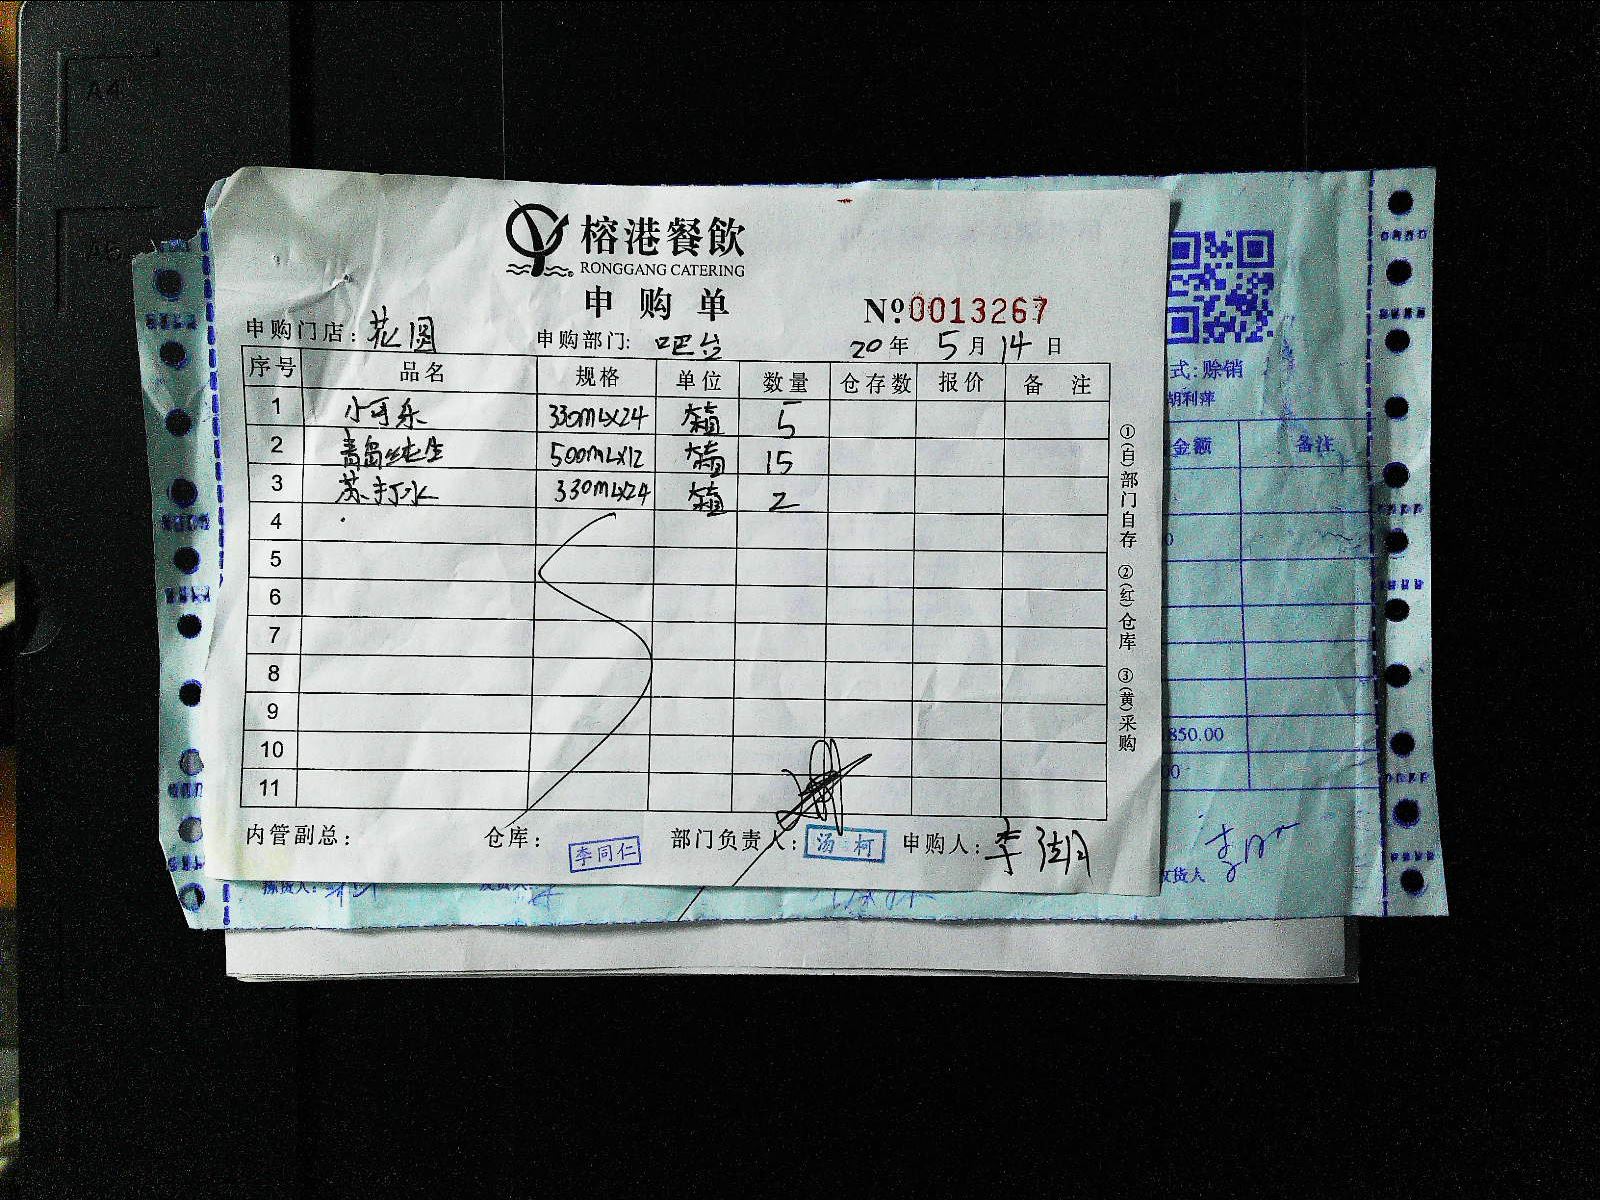 榕港餐飲
RONGGANG CATERING
申购单
№0013267
申购门店: 花圆 申购部门: 吧台 20年 5月14日
序号 品名 规格 单位 数量 仓存数 报价 备注
1 小可乐 330ML×24 箱 5
2 青岛纯生 500ML×12 箱 15
3 苏打水 330ML×24 箱 2
4
5
6
7
8
9
10
11
内管副总: 仓库: 李同仁 部门负责人: 汤 柯 申购人: 李
①(白)部门自存 ②(红)仓库 ③(黄)采购
式: 赊销
胡利萍
金额 备注
850.00
00
收货人